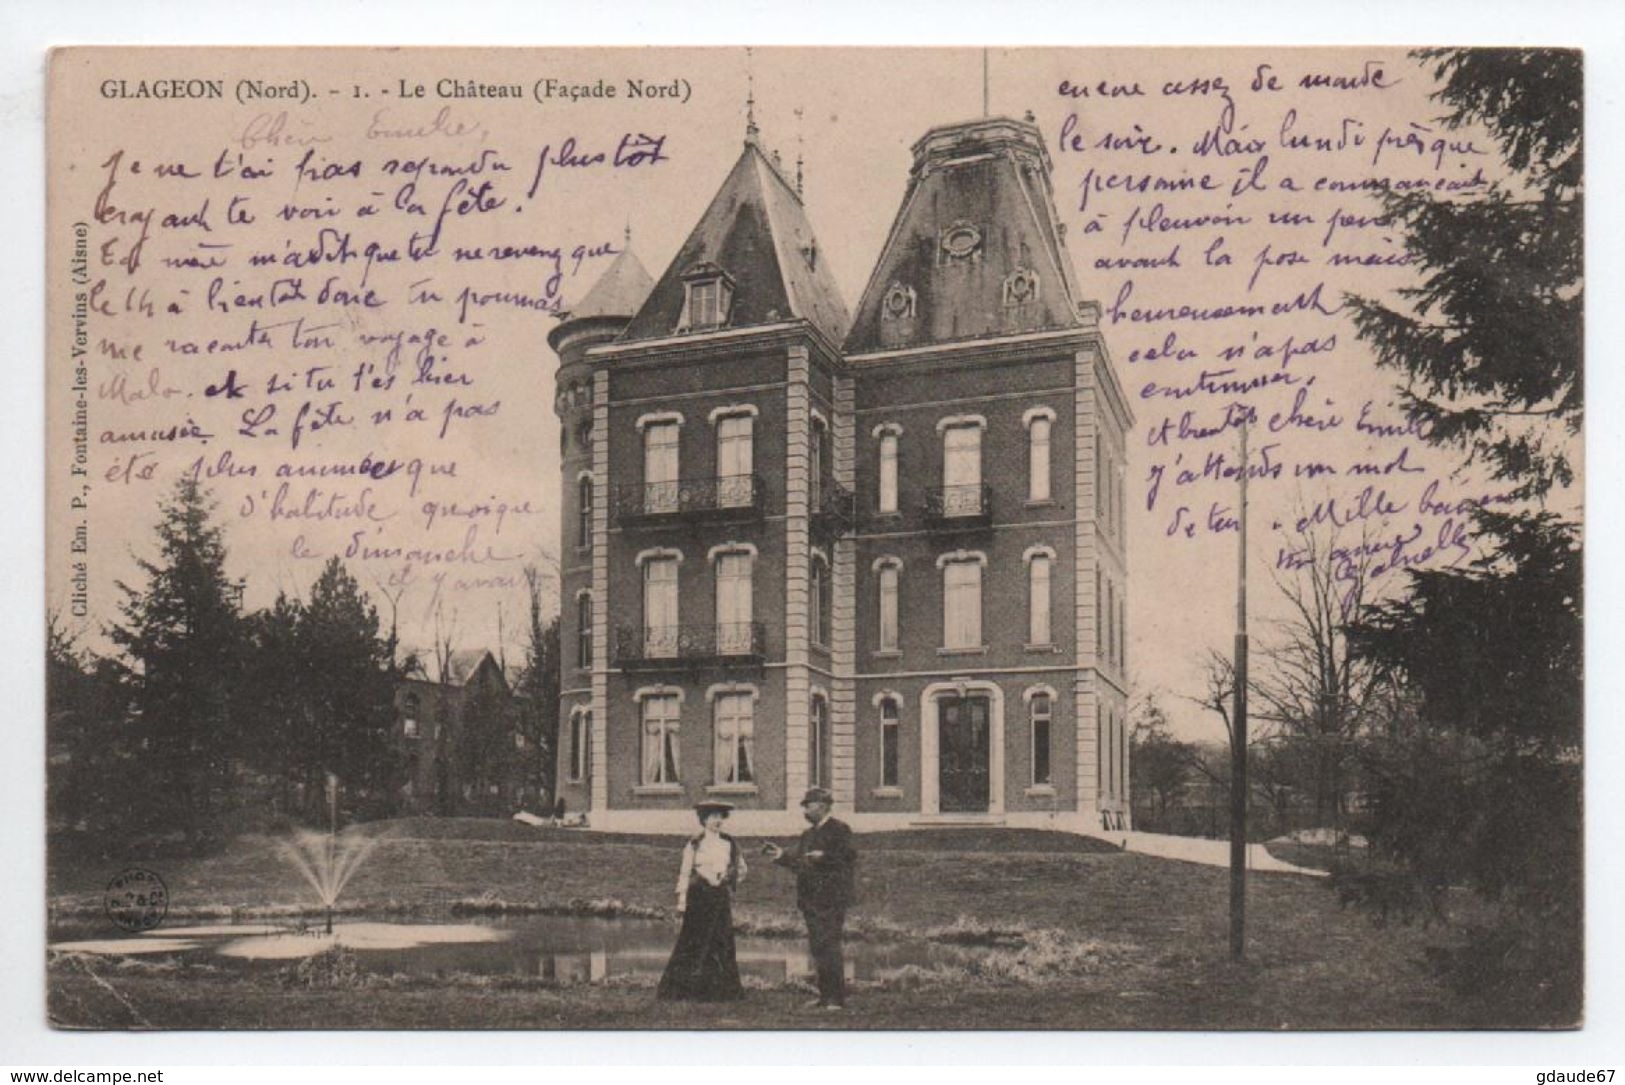 GLAGEON (Nord). - 1. - Le Château (Façade Nord)
Chère Emilie,
Je ne t'ai pas repondu plustôt
croyant te voir à la fête.
Ta mère m'a dit que tu ne reveneg que
le 14 à bientôt donc tu pourras
me raconter ton voyage à
Malo. et si tu t'es bien
amusée. La fête n'a pas
été plus animée que
d'habitude quoique
le dimanche
il y avait
encore assez de monde
le soir. Mais lundi presque
personne il a commancait
à pleuvoir un peu
avant la pose mais
heureusement
cela n'a pas
continuer.
et bientôt chère Emilie
J'attends un mot
de toi. Mille baisers
ton amie
Gabrielle
Cliché Em. P., Fontaine-les-Vervins (Aisne)
Website-Watermark
gdaude67